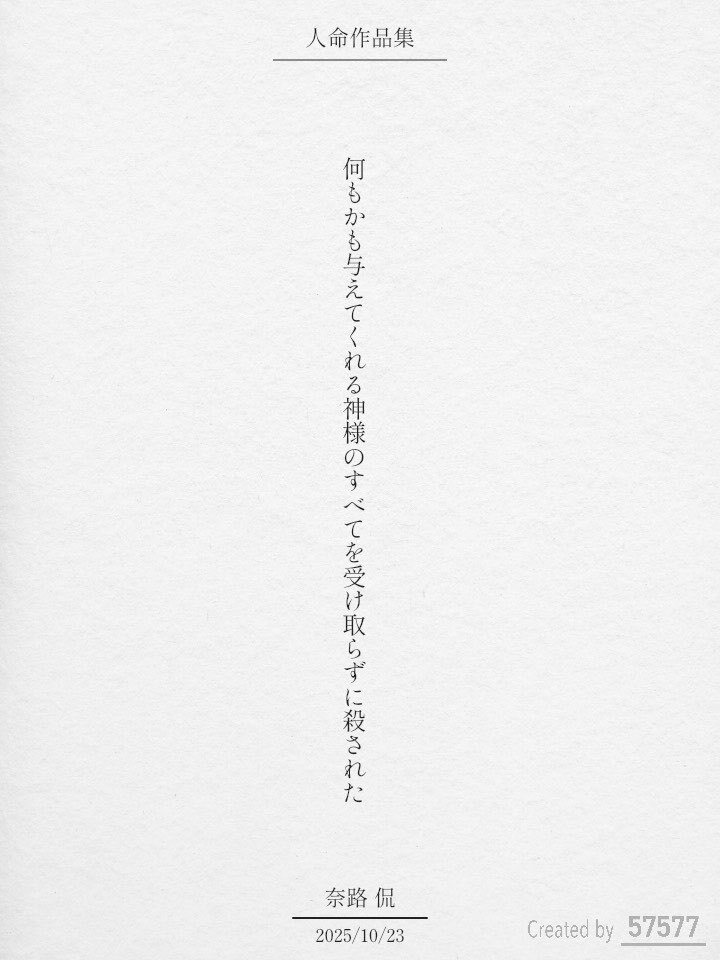 人命作品集
何もかも与えてくれる神様のすべてを受け取らずに殺された
奈路 侃
2025/10/23
Created by 57577